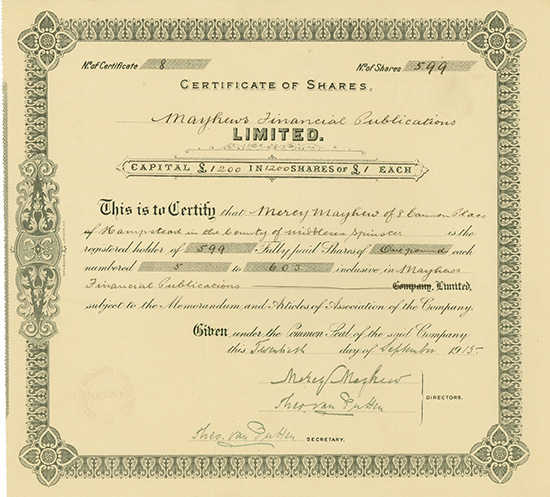 No. of Certificate 8 No. of Shares 599
CERTIFICATE OF SHARES.
Mayhews Financial Publications
LIMITED.
CAPITAL £1200 IN 1200 SHARES OF £1 EACH
This is to Certify that Mercy Mayhew of 8 Cannon Place
of Hampstead in the County of Middlesex Spinster is the
registered holder of 599 Fully paid Shares of One pound each
numbered 5 to 603 inclusive in Mayhews
Financial Publications Company, Limited,
subject to the Memorandum and Articles of Association of the Company.
Given under the Common Seal of the said Company
this Twentieth day of September 1915
Mercy Mayhew
Theo. van Putten
DIRECTORS.
Theo. van Putten SECRETARY.